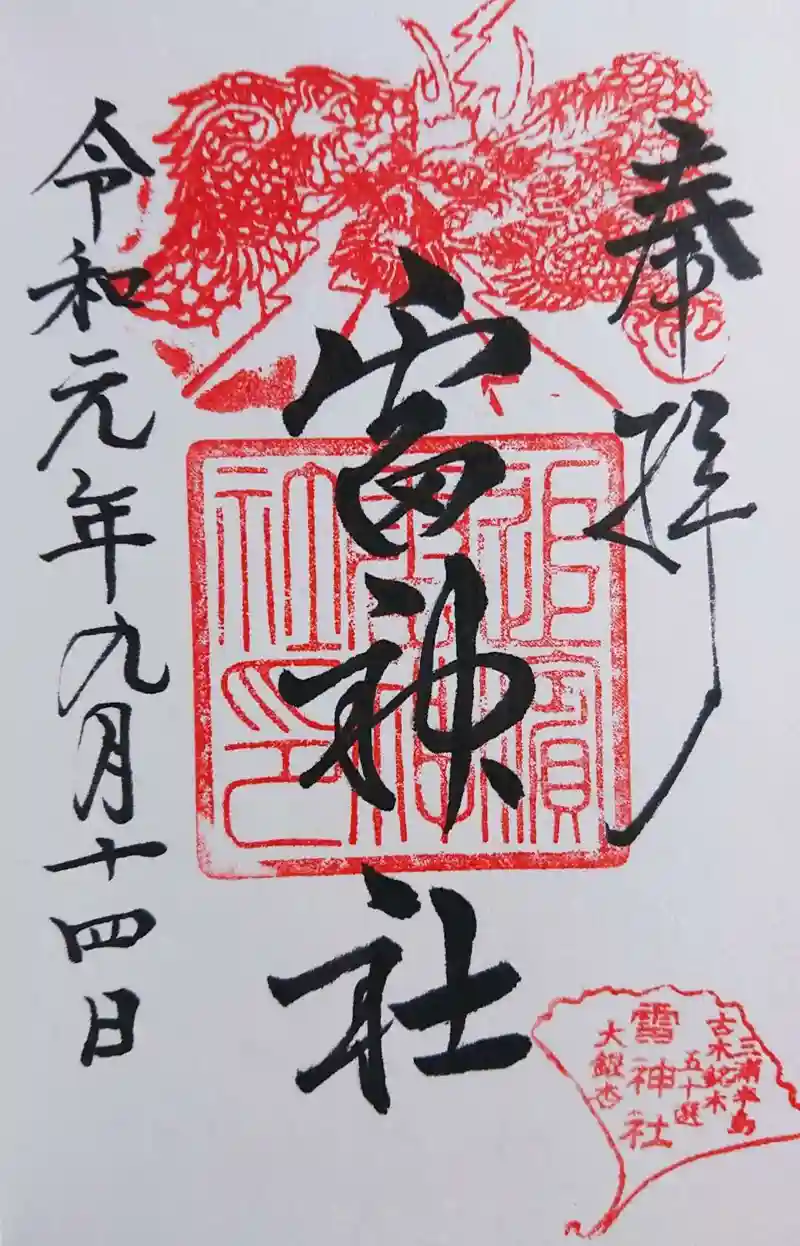 奉拝
雷神社
追濱
雷神
社印
令和元年九月十四日
三浦半島
古木銘木
五十選
雷神社
大銀杏